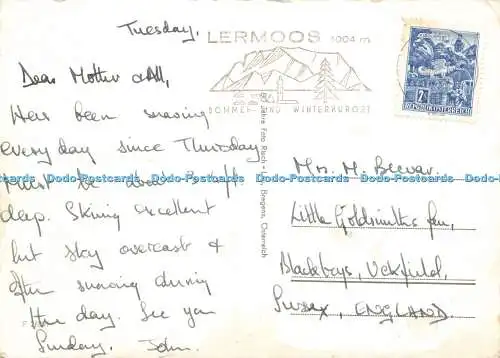 Tuesday.
LERMOOS 1004 m
SOMMER- UND WINTERKURORT
2 S
REPUBLIK ÖSTERREICH
Dear Mother & All,
Here been snowing
every day since Thursday
must be over 3 ft.
deep. Skiing excellent
but sky overcast &
often snowing during
the day. See you
Sunday. John.
Jahre Foto Risch-Lau, Bregenz, Österreich
Mrs. M. Beevar.
Little Goldsmiths fen,
Blackboys, Uckfield,
Sussex, ENGLAND.
Dodo-Postcards Dodo-Postcards Dodo-Postcards Dodo-Postcards Dodo-Postcards Dodo-Postcards